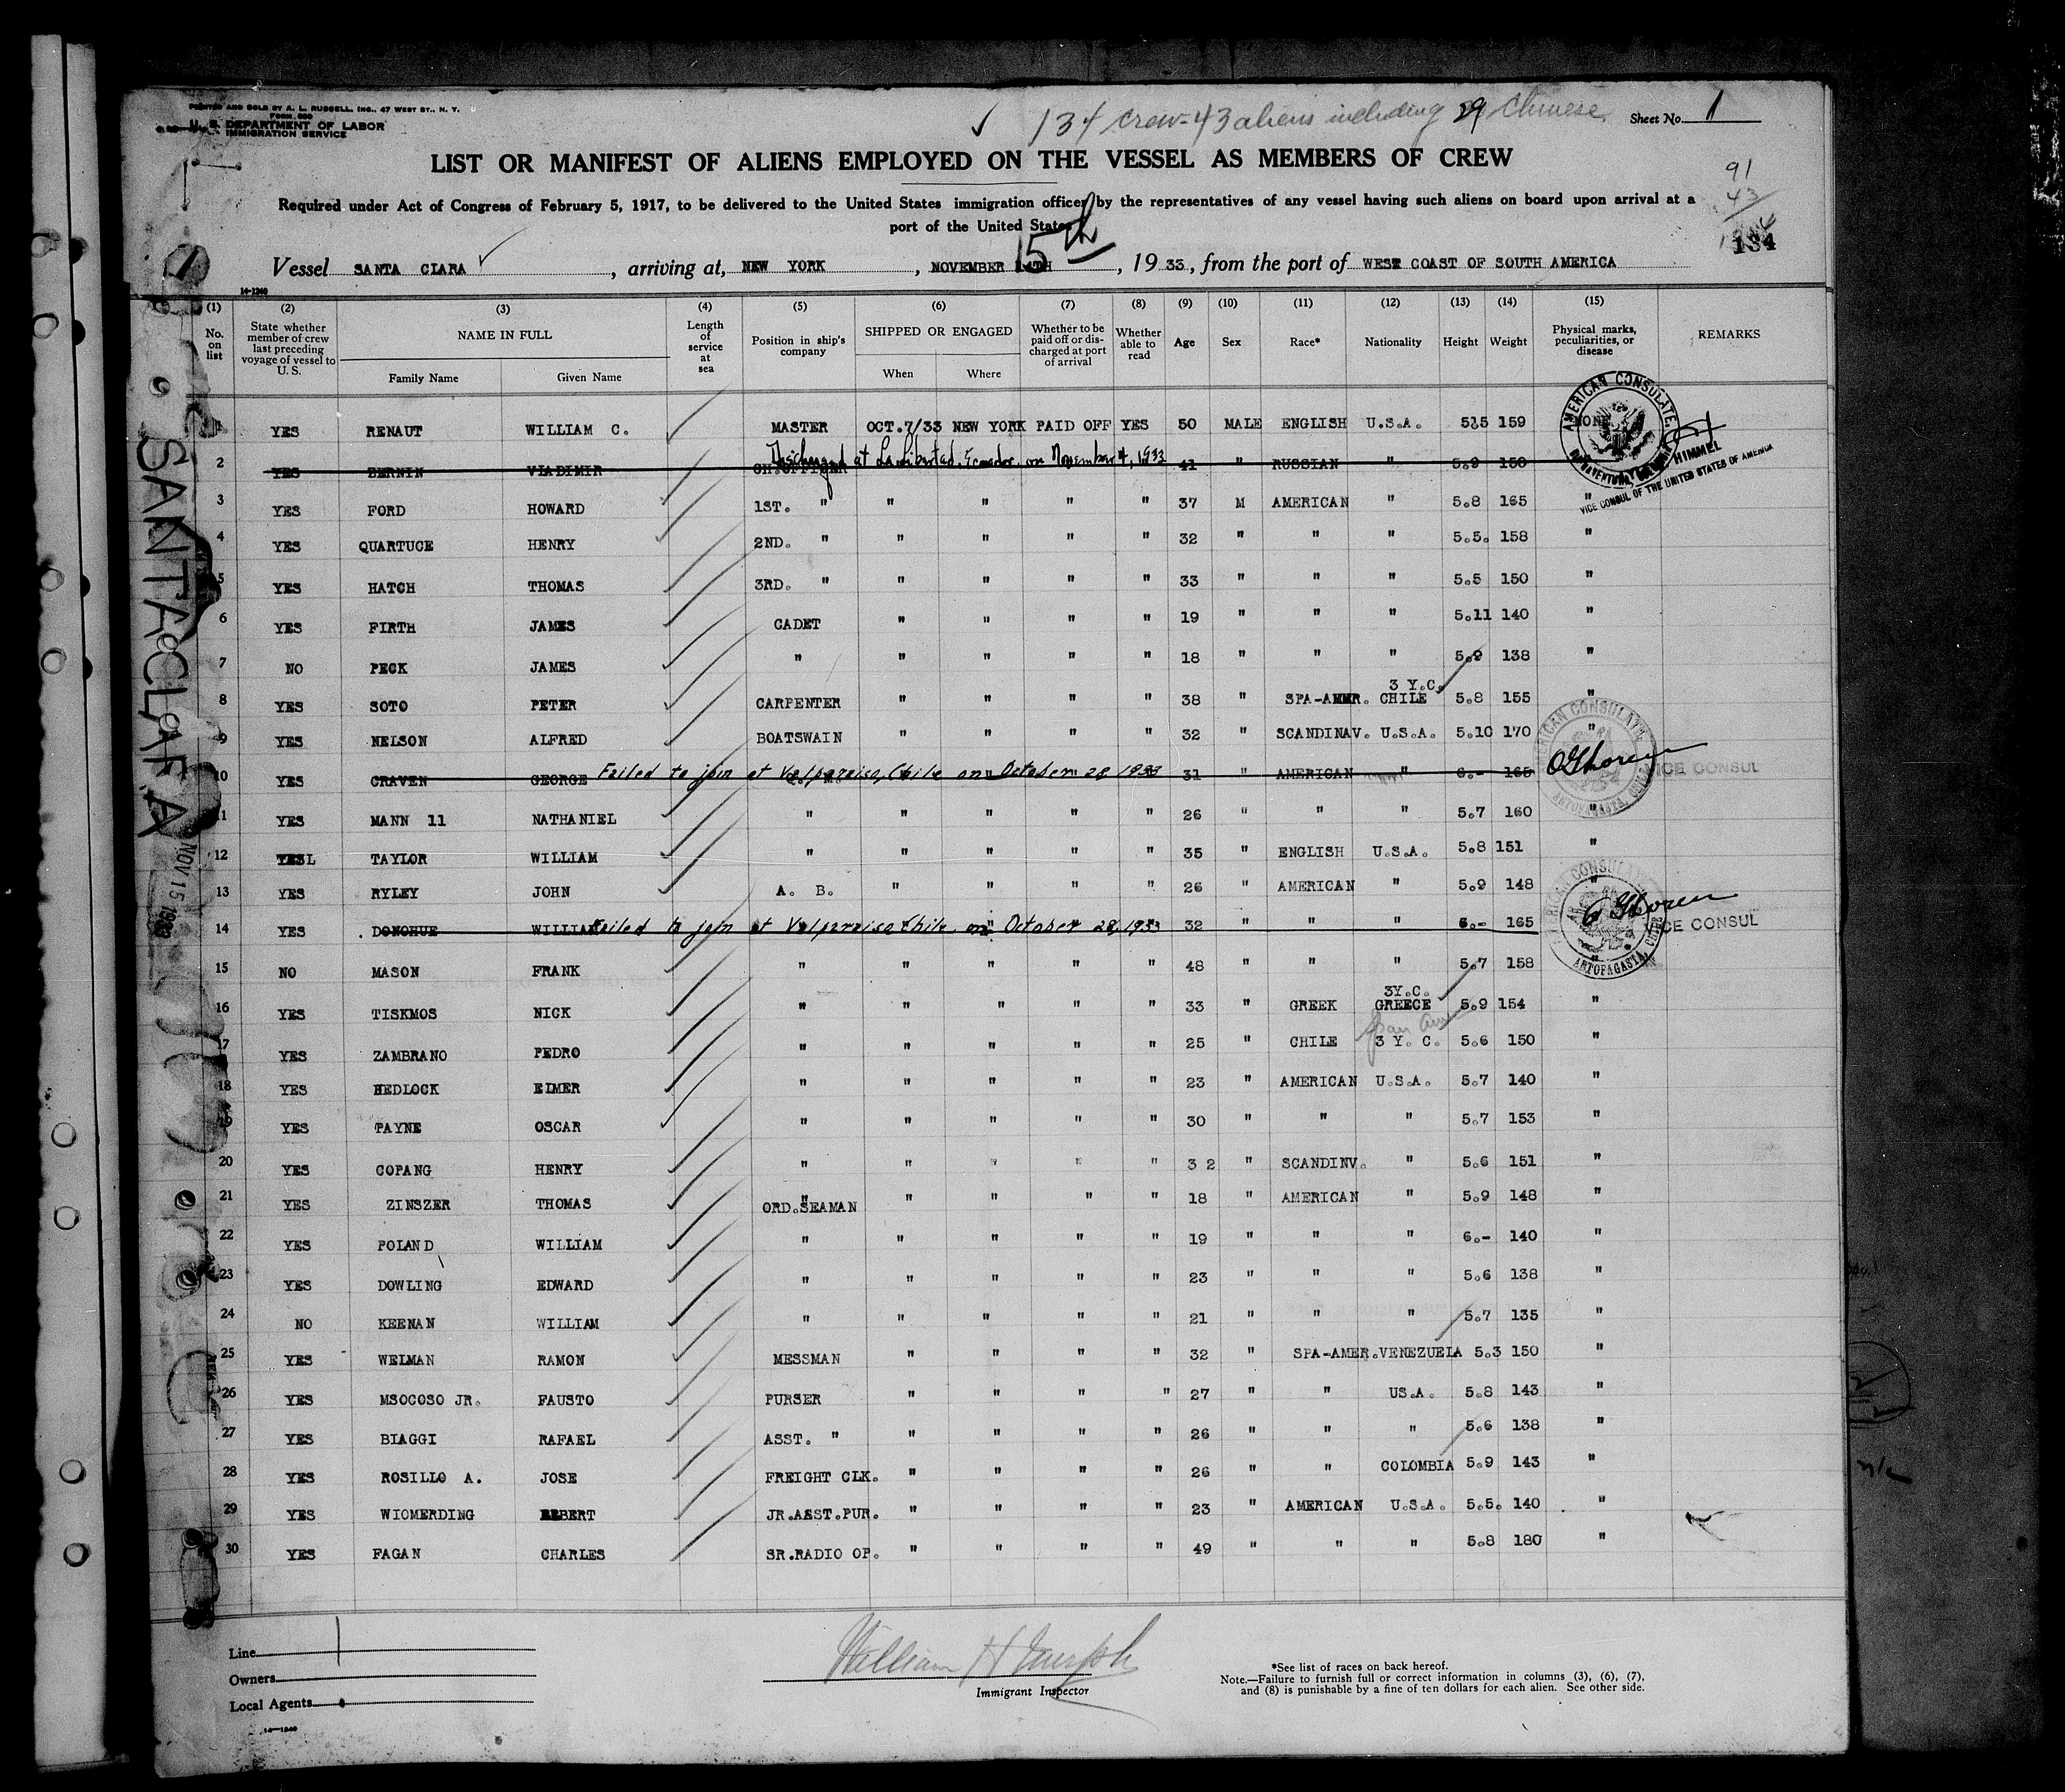 PRINTED AND SOLD BY A. L. RUSSELL, INC., 47 WEST ST., N. Y.
FORM 680
U. S. DEPARTMENT OF LABOR
IMMIGRATION SERVICE
✓ 134 crew - 43 aliens including 29 Chinese
Sheet No. 1
LIST OR MANIFEST OF ALIENS EMPLOYED ON THE VESSEL AS MEMBERS OF CREW
91
43
134
Required under Act of Congress of February 5, 1917, to be delivered to the United States immigration officer by the representatives of any vessel having such aliens on board upon arrival at a
port of the United States
15th
134
1
Vessel SANTA CLARA ✓, arriving at, NEW YORK, NOVEMBER 14TH, 1933, from the port of WEST COAST OF SOUTH AMERICA
14-1240
(1) (2) (3) (4) (5) (6) (7) (8) (9) (10) (11) (12) (13) (14) (15)
No. on list State whether member of crew last preceding voyage of vessel to U. S. NAME IN FULL Length of service at sea Position in ship's company SHIPPED OR ENGAGED Whether to be paid off or discharged at port of arrival Whether able to read Age Sex Race* Nationality Height Weight Physical marks, peculiarities, or disease REMARKS
Family Name Given Name When Where
1 YES RENAUT WILLIAM C. MASTER OCT.7/33 NEW YORK PAID OFF YES 50 MALE ENGLISH U.S.A. 5.5 159 NONE
AMERICAN CONSULATE
HIMMEL
VICE CONSUL OF THE UNITED STATES OF AMERICA
Discharged at La Libertad, Ecuador, on November 4, 1933
2 YES ZERNIN VLADIMIR CH.OFFICER 41 " RUSSIAN " 5.9 150
3 YES FORD HOWARD 1ST. " " " " " 37 M AMERICAN " 5.8 165 "
4 YES QUARTUCE HENRY 2ND. " " " " " 32 " " " 5.5. 158 "
5 YES HATCH THOMAS 3RD. " " " " " 33 " " " 5.5 150 "
6 YES FIRTH JAMES CADET " " " " 19 " " " 5.11 140 "
7 NO PECK JAMES " " " " " 18 " " " 5.9 138 "
3 Y.C.
8 YES SOTO PETER CARPENTER " " " " 38 " SPA-AMER. CHILE 5.8 155 "
9 YES NELSON ALFRED BOATSWAIN " " " " 32 " SCANDINAV. U.S.A. 5.10 170 "
Failed to join at Valparaiso, Chile on October 28 1933
10 YES CRAVEN GEORGE 31 " AMERICAN " 6.- 165
VICE CONSUL
AMERICAN CONSULATE
ANTOFAGASTA, CHILE
11 YES MANN 11 NATHANIEL " " " " " 26 " " " 5.7 160 "
12 YES TAYLOR WILLIAM " " " " " 35 " ENGLISH U.S.A. 5.8 151 "
13 YES RYLEY JOHN A. B. " " " " 26 " AMERICAN " 5.9 148 "
Failed to join at Valparaiso Chile, on October 28, 1933
14 YES DONOHUE WILLIAM 32 " " " 6.- 165
VICE CONSUL
AMERICAN CONSULATE
ANTOFAGASTA, CHILE
15 NO MASON FRANK " " " " " 48 " " " 5.7 158 "
3Y.C.
16 YES TISKMOS NICK " " " " " 33 " GREEK GREECE 5.9 154 "
Span Am
17 YES ZAMBRANO PEDRO " " " " " 25 " CHILE 3 Y. C. 5.6 150 "
18 YES HEDLOCK ELMER " " " " " 23 " AMERICAN U.S.A. 5.7 140 "
19 YES PAYNE OSCAR " " " " " 30 " " " 5.7 153 "
20 YES COPANG HENRY " " " " " 3 2 " SCANDINV. " 5.6 151 "
21 YES ZINSZER THOMAS ORD.SEAMAN " " " " 18 " AMERICAN " 5.9 148 "
22 YES POLAND WILLIAM " " " " " 19 " " " 6.- 140 "
23 YES DOWLING EDWARD " " " " " 23 " " " 5.6 138 "
24 NO KEENAN WILLIAM " " " " " 21 " " " 5.7 135 "
25 YES WELMAN RAMON MESSMAN " " " " 32 " SPA-AMER. VENEZUELA 5.3 150 "
26 YES MSOCOSO JR. FAUSTO PURSER " " " " 27 " " US.A. 5.8 143 "
27 YES BIAGGI RAFAEL ASST. " " " " " 26 " " " 5.6 138 "
28 YES ROSILLO A. JOSE FREIGHT CLK. " " " " 26 " " COLOMBIA 5.9 143 "
29 YES WIOMERDING ELBERT JR.ASST.PUR. " " " " 23 " AMERICAN U.S.A. 5.5. 140 "
30 YES FAGAN CHARLES SR.RADIO OP. " " " " 49 " " " 5.8 180 "
SANTA CLARA
NOV 15 1933
Line
Owners
Local Agents
14-1240
William H Murph
Immigrant Inspector
*See list of races on back hereof.
Note.—Failure to furnish full or correct information in columns (3), (6), (7),
and (8) is punishable by a fine of ten dollars for each alien. See other side.